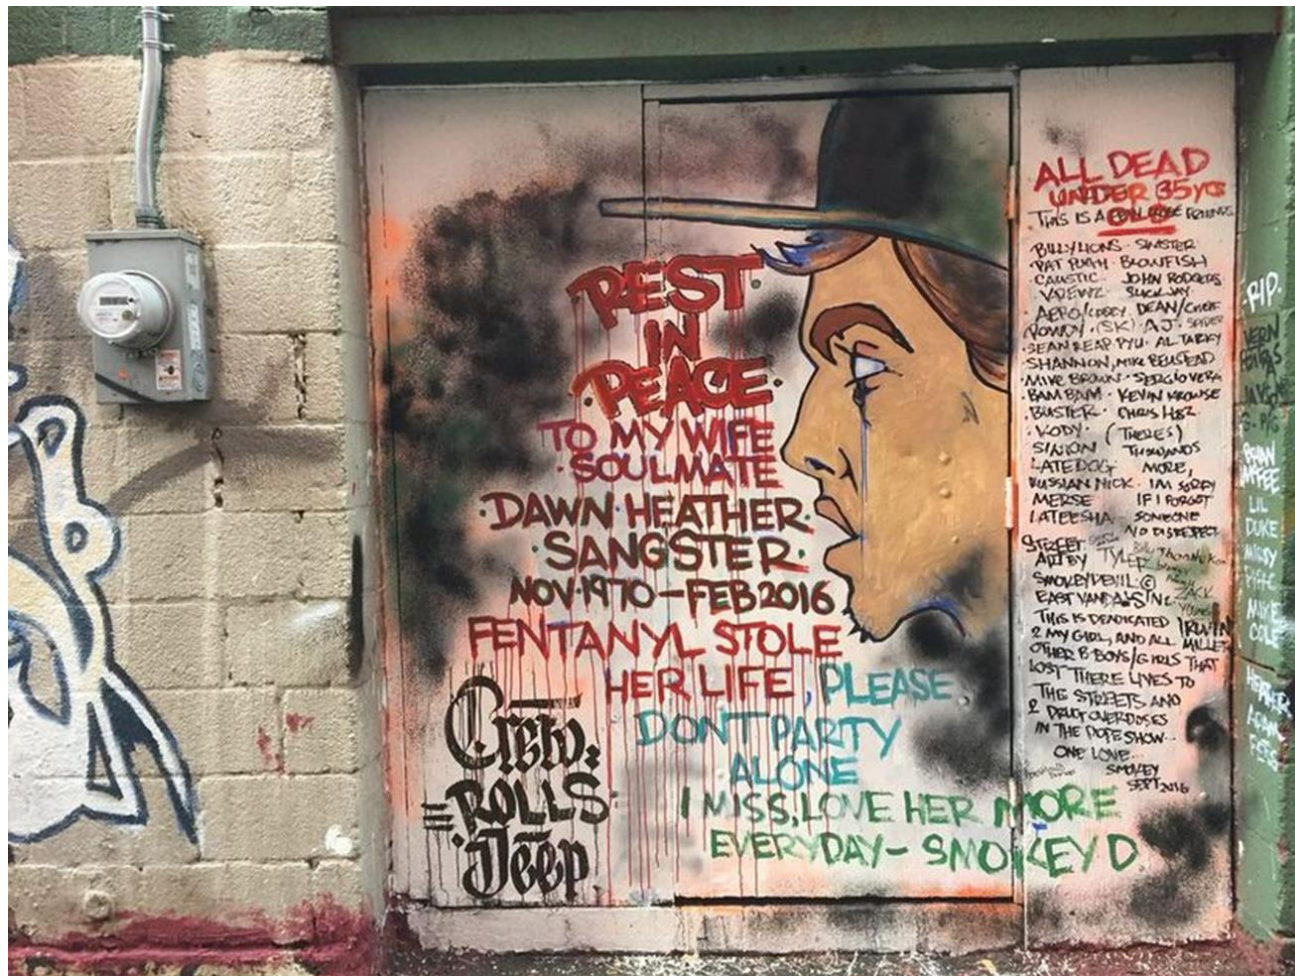 REST
IN
PEACE.
TO MY WIFE
SOULMATE
DAWN HEATHER
SANGSTER
NOV·1970-FEB 2016
FENTANYL STOLE
HER LIFE, PLEASE
DONT PARTY
ALONE
I MISS, LOVE HER MORE
EVERYDAY- SMOKEY D.
Crew:
ROLLS
Deep
ALL DEAD
UNDER 35yrs
THIS IS A FRIENDS
BILLY LIONS · SINISTER
PAT PUGH · BLOWFISH
CAUSTIC · JOHN RODGERS
SLICK JAY
AERO/ DEAN/
ROWDY · (SK) · A.J.
SEAN REAP PYU · AL TARKY
SHANNON, MIKE BEUSTEAD
MIKE BROWN · SERGIO VERA
BAM BAM · KEVIN KROWSE
BUSTER · CHRIS
KODY · (THERES)
SIMON THOUSANDS
LATEDOG MORE,
RUSSIAN NICK · IM SORRY
MERSE IF I FORGOT
LATEESHA SOMEONE
NO DISRESPECT
STREET
ART BY TYLER
SMOKEY DEVIL ©
ZACK
EAST VANDALS INC
THIS IS DEDICATED IRWIN
2 MY GIRL, AND ALL MILLER
OTHER B·BOYS/GIRLS THAT
LOST THERE LIVES TO
THE STREETS AND
2 DRUG OVERDOSES
IN THE DOPE SHOW...
ONE LOVE...
SMOKEY
SEPT 2016
RIP.
VERN
BRIAN
LIL
DUKE
MISSY
MIKE
COLE
HEATHER
ADAM